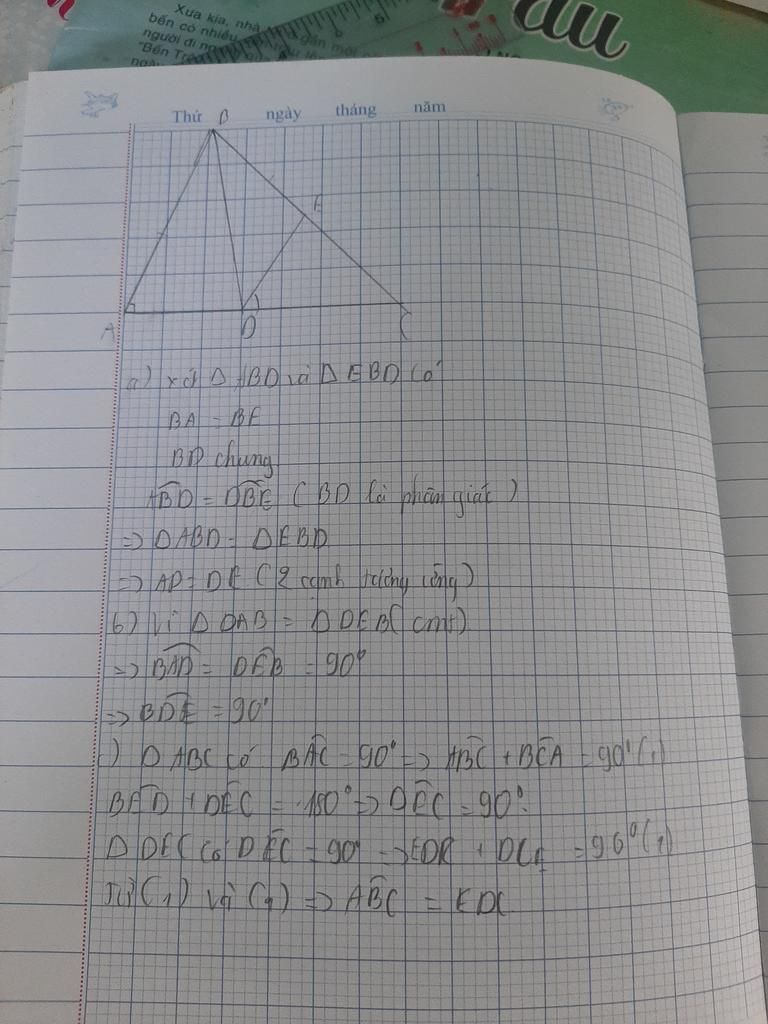 Xưa kia, nhà
bến có nhiều
người đi
"Bến
Thứ ngày tháng năm
B
E
A
D
C
a) xét Δ ABD và Δ EBD có
BA = BE
BD chung
ABD = DBE ( BD là phân giác )
=> ΔABD = ΔEBD
=> AD = DE ( 2 cạnh tương ứng)
b) Vì Δ DAB = Δ DEB( cmt)
=> BAD = DEB = 90°
=> BDE = 90°
) Δ ABC có BAC = 90° => ABC + BCA = 90° (1)
BED + DEC = 180° => DEC = 90°
Δ DEC có DEC = 90° => EDC + DCE = 90°
Từ (1) và => ABC = EDC